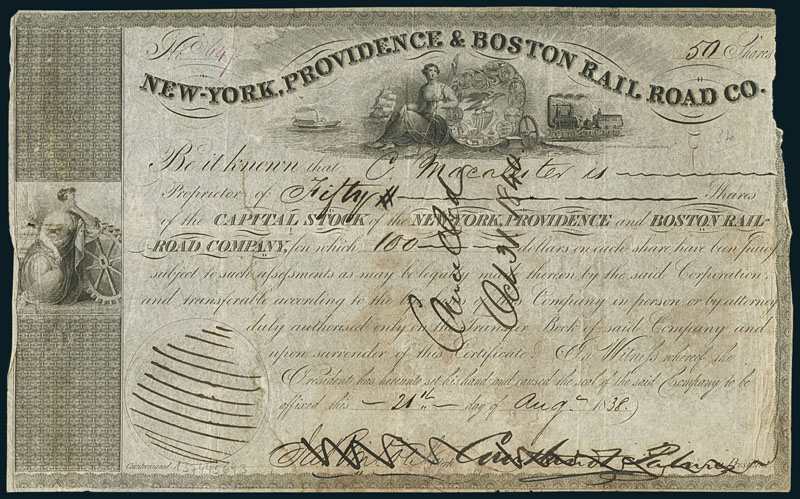 No. 50 Shares
NEW-YORK, PROVIDENCE & BOSTON RAIL ROAD CO.
Be it known that C. Macalester is
Proprietor of Fifty Shares
of the CAPITAL STOCK of the NEW-YORK, PROVIDENCE and BOSTON RAIL-
ROAD COMPANY, (on which 100 dollars on each share have been paid)
subject to such assessments as may be legally made thereon by the said Corporation,
and transferable according to the Company in person or by attorney
duly authorised only on the Transfer Book of said Company and
upon surrender of this Certificate. In Witness whereof the
President has hereunto set his hand and caused the seal of the said Company to be
affixed this 21st day of Augt 1838
Cancelled
Oct 31 1840
Countersigned President